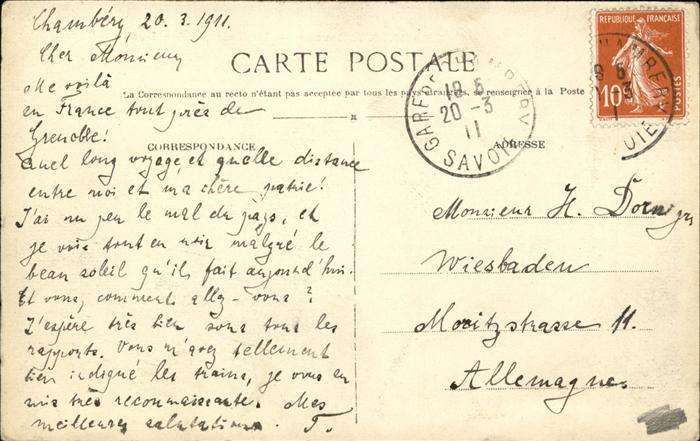 Chambéry 20.3.1911.
Cher Monsieur
Me voilà
en France tout près de
Grenoble!
Quel long voyage et quelle distance
entre moi et ma chère patrie!
J'ai un peu le mal du pays, et
je vois tout en noir malgré le
beau soleil qu'il fait aujourd'hui.
Et vous, comment allez-vous?
J'espère très bien sous tous les
rapports. Vous m'avez tellement
bien indiqué les trains, je vous en
suis très reconnaissante. Mes
meilleures salutations. F.
CARTE POSTALE
La Correspondance au recto n'étant pas acceptée par tous les pays étrangers, se renseigner à la Poste
CORRESPONDANCE
ADRESSE
GARE DE CHAMBÉRY
18 5
20-3
11
SAVOIE
REPUBLIQUE FRANÇAISE
10
Monsieur H.
Wiesbaden
Moritzstrasse 11.
Allemagne.